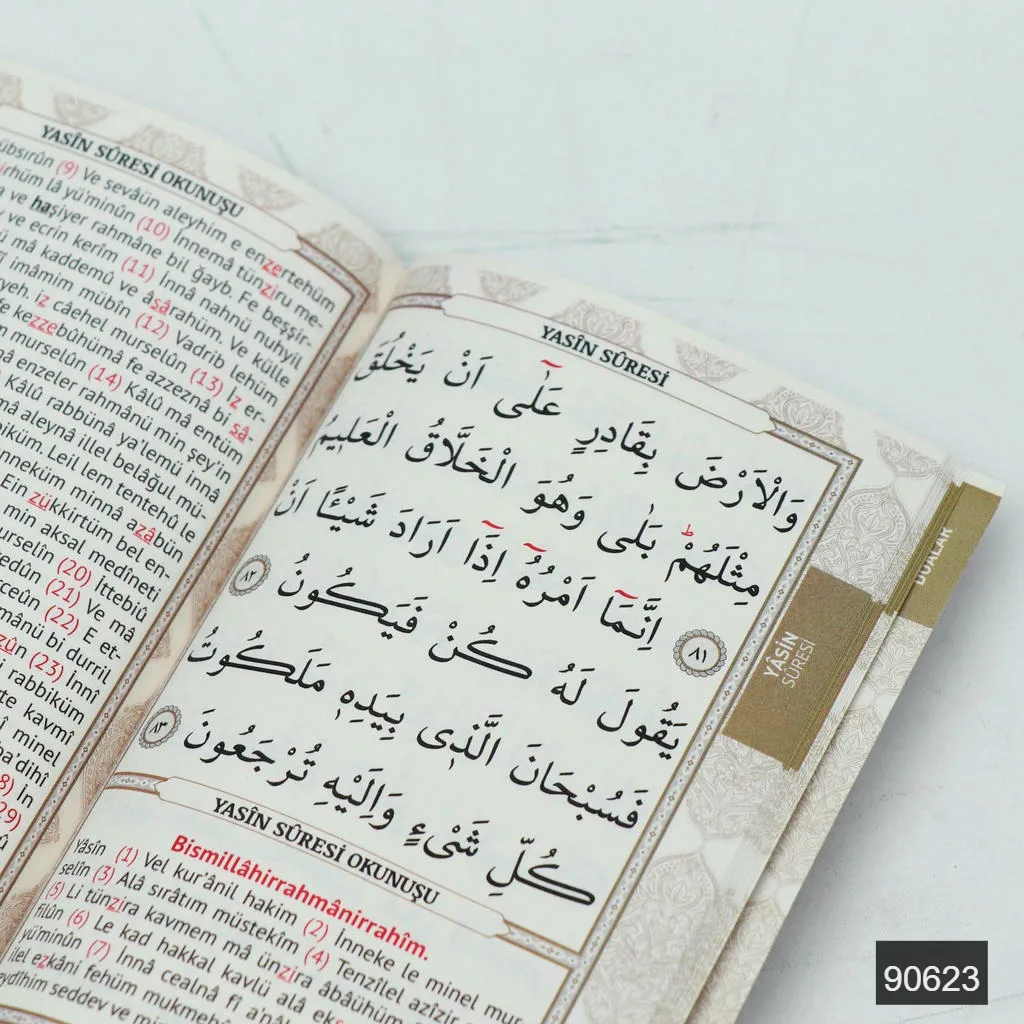 YASÎN SÛRESİ OKUNUŞU
übsırûn (9) Ve sevâün aleyhim e enzertehüm
lâ yü'minûn (10) İnnemâ tünziru me-
ve haşiyer rahmâne bil ğayb. Fe beşşir-
ve ecrin kerîm (11) İnnâ nahnü nuhyil
mâ kaddemû ve âsârahüm. Ve külle
imâmim mübîn (12) Vadrib lehüm
yeh. iz câehel murselûn (13) İz er-
fe kezzebûhümâ fe azzeznâ bi sâ-
murselûn (14) Kâlû mâ entüm
enzeler rahmânü min şey'in
Kâlû rabbünâ ya'lemü innâ
mâ aleynâ illel belâğul mü-
biküm. Leil lem tentehû le
enneküm minnâ azâbün
Ein zükkirtüm bel en-
min aksal medîneti
murselîn (20) İttebiû
(21) Ve mâ
(22) E et-
bi durril
(23) İnnî
rabbiküm
kavmî
minel
YASÎN SÛRESİ
وَالْاَرْضَ بِقَادِرٍ عَلٰٓى اَنْ يَخْلُقَ
مِثْلَهُمْ بَلٰى وَهُوَ الْخَلَّاقُ الْعَل۪يمُ
﴿٨١﴾ اِنَّمَٓا اَمْرُهُٓ اِذَٓا اَرَادَ شَيْـًٔا اَنْ
يَقُولَ لَهُ كُنْ فَيَكُونُ ﴿٨٢﴾
فَسُبْحَانَ الَّذ۪ى بِيَدِه۪ مَلَكُوتُ
كُلِّ شَىْءٍ وَاِلَيْهِ تُرْجَعُونَ ﴿٨٣﴾
YASÎN SÛRESİ OKUNUŞU
Bismillâhirrahmânirrahîm.
Yâsîn (1) Vel kur'ânil hakim (2) İnneke le minel mur-
selîn (3) Alâ sırâtım müstekîm (4) Tenzîlel azîzir
(5) Li tünzira kavmem mâ ünzira âbâühüm
filûn (6) Le kad hakkal kavlü alâ
yü'minûn (7) İnnâ cealnâ fî
ilel ezkâni fehüm
eydîhim seddev ve
YÂSİN
SÛRESİ
DUALAR
90623